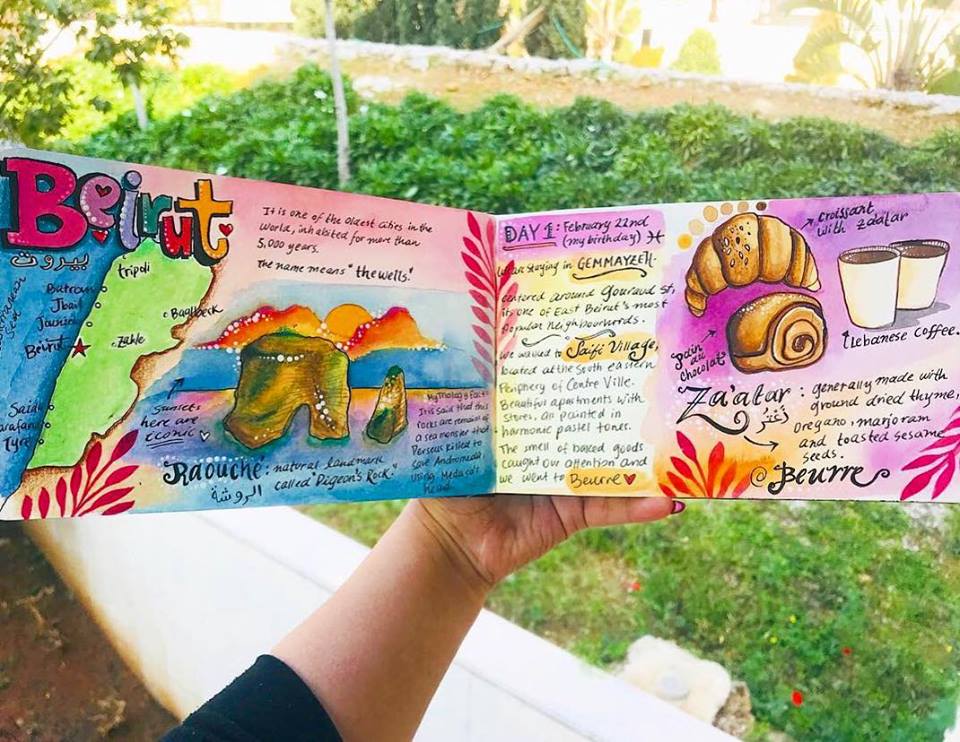 Beirut
بيروت
tripoli
Batroun
Jbail
Jounieh
Baalbeck
Beirut
Zahle
Saida
Tyre
sea
It is one of the oldest cities in the
world, inhabited for more than
5,000 years.
The name means "the wells".
Sunsets
here are
iconic
Raouché: natural landmark
called "Pigeon's Rock."
الروشة
Mythology Fact:
It is said that this
rocks are remains of
a sea monster that
Perseus killed to
save Andromeda
using Medusa's
head.
DAY 1: February 22nd
(my birthday) ♓
We are staying in GEMMAYZEH
centered around Gouraud st,
its one of East Beirut's most
Popular neighbourhoods.
We walked to Saifi Village,
located at the South eastern
Periphery of Centre Ville.
Beautiful apartments with
stores, all painted in
harmonic pastel tones.
The smell of baked goods
caught our attention and
we went to Beurre
croissant
with za'atar
pain
au
chocolat
Lebanese coffee.
Za'atar: generally made with
زعتر
ground dried thyme,
oregano, marjoram
and toasted sesame
seeds.
@Beurre